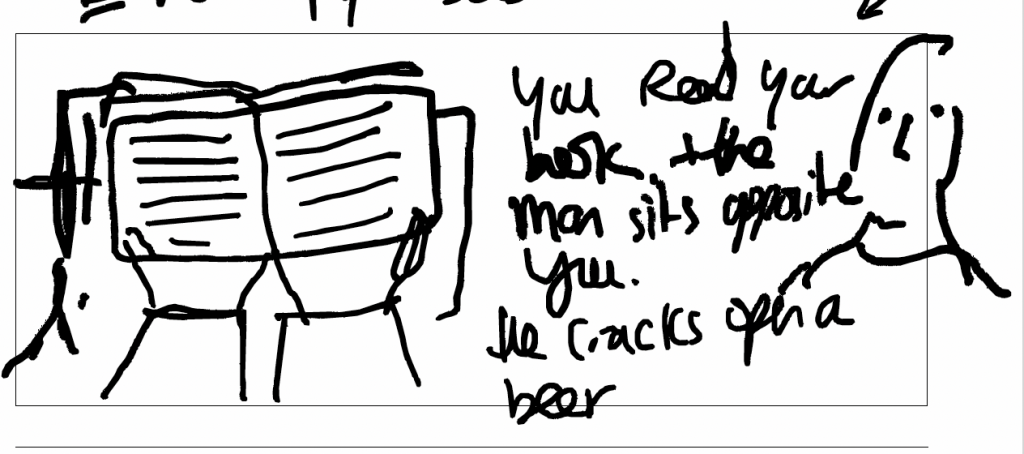 You Read your
book. the
man sits opposite
you.
He cracks open a
beer